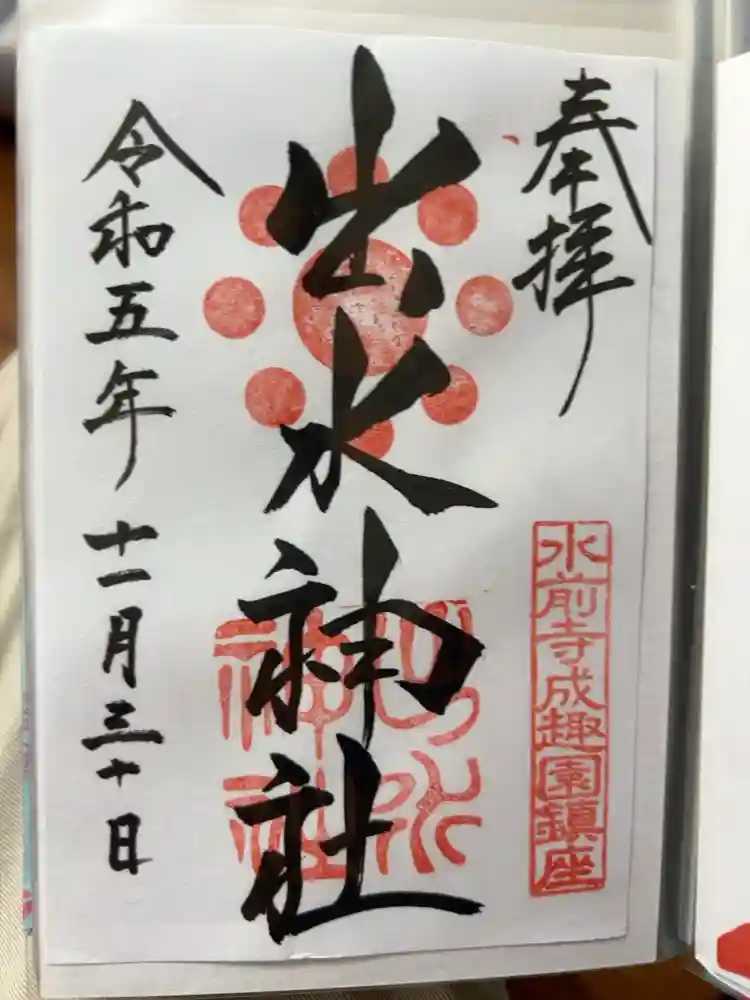 奉拝
水前寺成趣園鎮座
出水神社
出水神社
令和五年十一月三十日